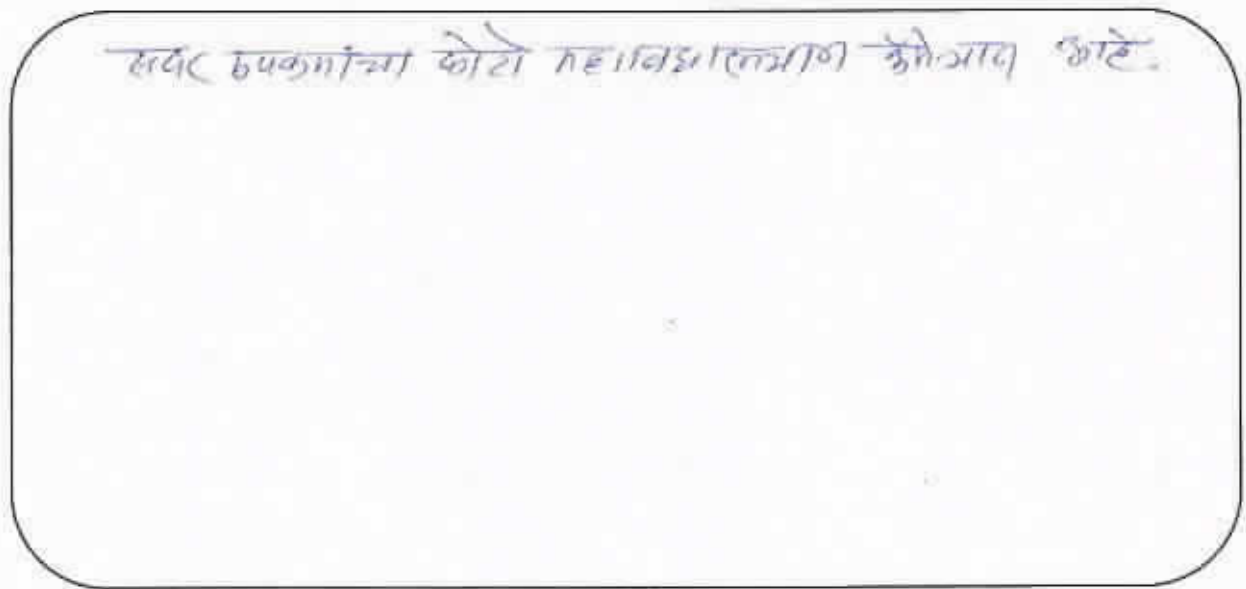 सदर उपक्रमांचा फोटो महाविद्यालयाच्या कॅमेऱ्यात आहे.